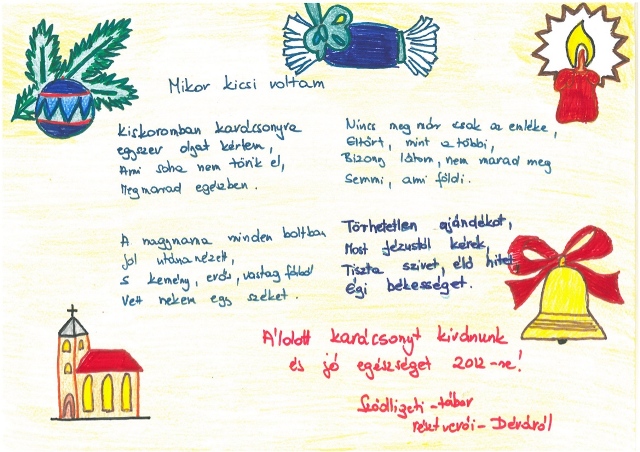 Mikor kicsi voltam
Kiskoromban karácsonyra
egyszer olyat kértem,
Ami soha nem törik el,
Megmarad egészben.
A nagymama minden boltban
jól utána nézett,
S kemény, erős, vastag fából
Vett nekem egy széket.
Nincs meg már csak az emléke,
Eltört, mint a többi,
Bizony látom, nem marad meg
Semmi, ami földi.
Törhetetlen ajándékot,
Most Jézustól kérek,
Tiszta szívet, élő hitet
Égi békességet.
Áldott karácsonyt kívánunk
és jó egészséget 2012-re!
tábor
résztvevői - Déváról